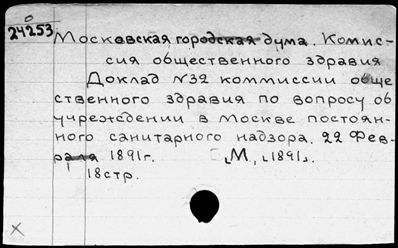 24253
Московская городская дума. Комис-
сия общественного здравия
Доклад №32 коммиссии обще
ственного здравия по вопросу об
учреждении в Москве постоян-
ного санитарного надзора. 22 Фев-
раля 1891г. [М, 1891].
18стр.